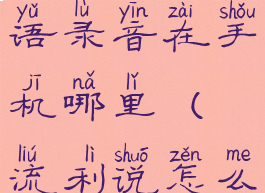 yǔ lù yīn zài shǒu
语录音在手
jī nǎ lǐ
机哪里（
liú lì shuō zěn me
流利说怎么